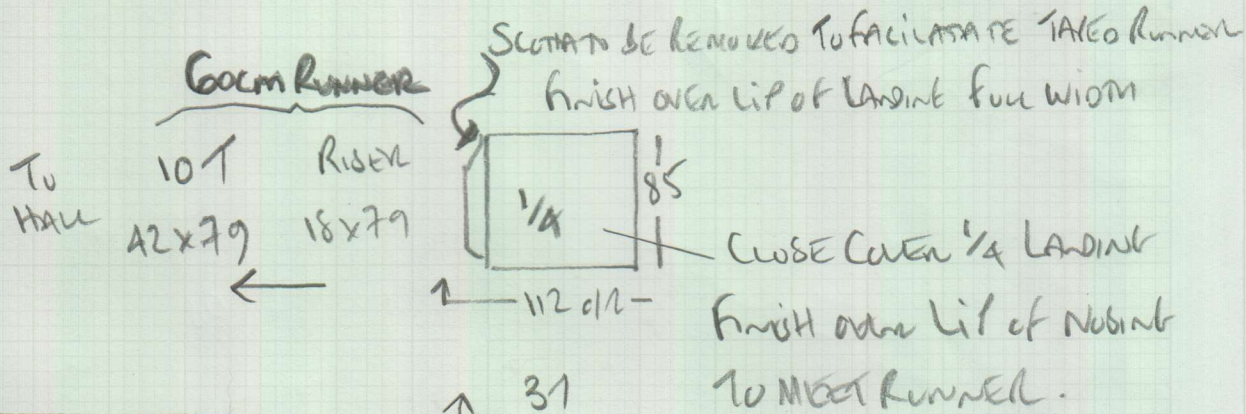 SCOTIA TO BE REMOVED TO FACILATATE TAKEO RUNNER
FINISH OVER LIP OF LANDING FULL WIDTH
60CM RUNNER
TO HALL
10T RISER
42x79 18x79
1/4
85
112 d/2
CLOSE COVER 1/4 LANDING
FINISH OVER LIP OF NOSING
TO MEET RUNNER.
31